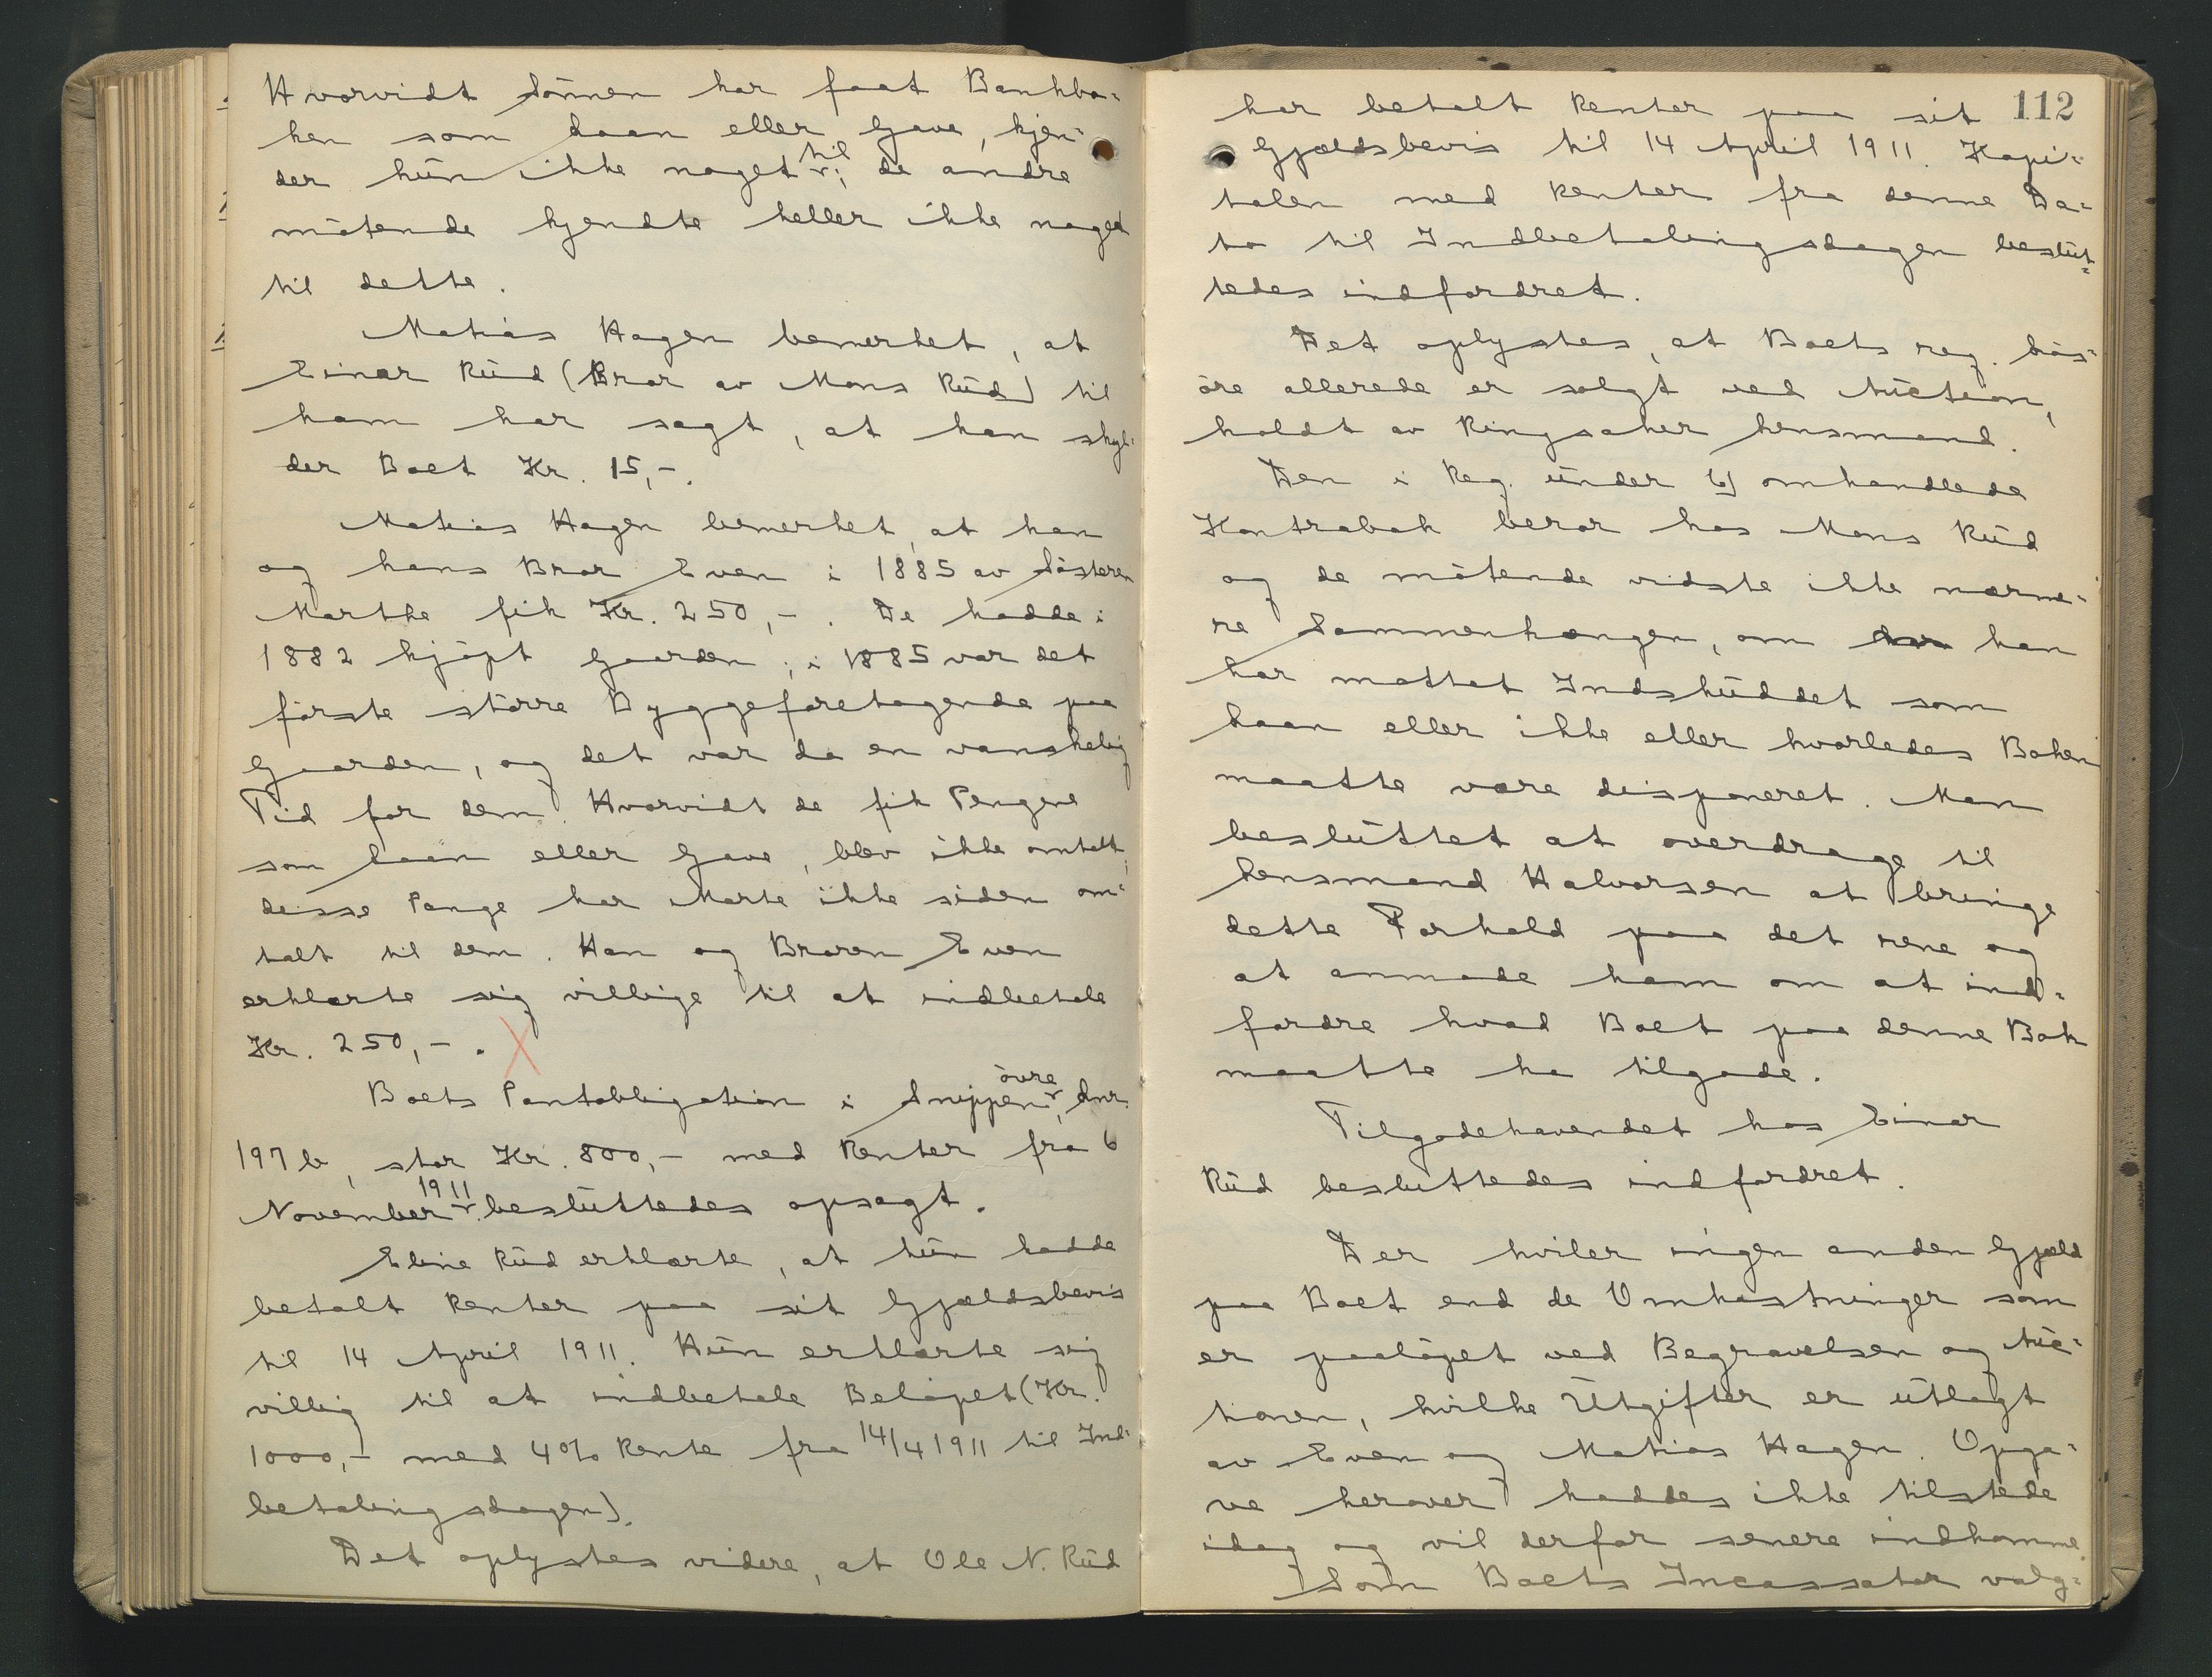 Hvorvidt Sönnen har faat Bankbo-
ken som Laan eller Gave, kjen-
der hun ikke noget til; de andre
mötende kjendte heller ikke noget
til dette.
Matias Hagen bemerket, at
Einar Rud (Bror av Mons Rud) til
ham har sagt, at han skyl-
der Boet Kr. 15,-.
Matias Hagen bemerket, at han
og hans Bror Even i 1885 av Sösteren
Marthe fik Kr. 250,-. De hadde i
1882 kjöpt Gaarden; i 1885 var det
förste större Byggeforetagende paa
Gaarden, og det var da en vanskelig
Tid for dem. Hvorvidt de fik Pengene
som Laan eller Gave, blev ikke omtalt,
disse Penge har Marte ikke siden om-
talt til dem. Han og Broren Even
erklærte sig villige til at indbetale
Kr. 250,-. X
Boets Pantobligation i Snippen övre, Lnr.
197 b, stor Kr. 800,- med Renter fra 6
November 1911 besluttedes opsagt.
Eline Rud erklærte, at hun hadde
betalt Renter paa sit Gjældsbevis
til 14 April 1911. Hun erklærte sig
villig til at indbetale Belöpet (Kr.
1000,- med 4% Rente fra 14/4 1911 til Ind-
betalingsdagen).
Det oplystes videre, at Ole N. Rud
112
har betalt Renter paa sit
Gjældsbevis til 14 April 1911. Kapi-
talen med Renter fra denne Da-
to til Indbetalingsdagen beslut-
tedes indfordret.
Det oplystes, at Boets reg. Lös-
öre allerede er solgt ved Auction,
holdt av Ringsaker Lensmand.
Den i Reg. under 6) omhandlede
Kontrabok beror hos Mons Rud
og de mötende vidste ikke nærme-
re Sammenhængen, om han
har mottat Indskuddet som
Laan eller ikke eller hvorledes Boken
maatte være disponeret. Man
besluttet at overdrage til
Lensmand Halvorsen at bringe
dette Forhold paa det rene og
at anmode ham om at ind-
fordre hvad Boet paa denne Bok
maatte ha tilgode.
Tilgodehavendet hos Einar
Rud besluttedes indfordret.
Der hviler ingen anden Gjæld
paa Boet end de Omkostninger som
er paalöpet ved Begravelsen og Auc-
tionen, hvilke Utgifter er utlagt
av Even og Matias Hagen. Opga-
ve herover haddes ikke tilstede
idag og vil derfor senere indkomme.
Som Boets Incassator valg-